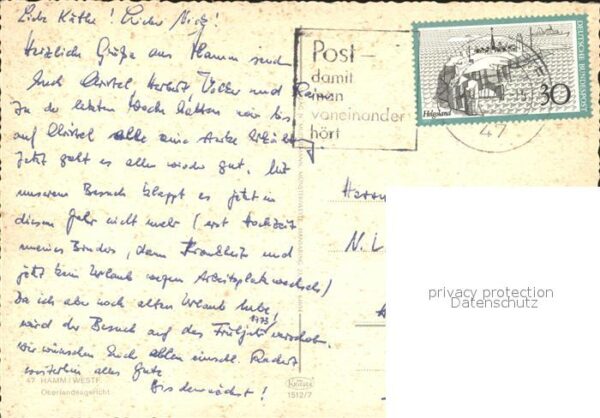 Liebe Käthe! Lieber
Herzliche Grüße aus Hamm
Euch Christel, Herbert, Volker und
In der letzten Woche hatten wir bis
auf Christel alle eine starke
Jetzt geht es allen wieder gut. Mit
unserem Besuch klappt es jetzt in
diesem Jahr nicht mehr (erst Hochzeit
meines Bruders, dann Krankheit und
jetzt kein Urlaub wegen Arbeitsplatzwechsel)
Da ich aber noch alten Urlaub habe,
wird der Besuch auf das Frühjahr 1973 verschoben.
Wir wünschen Euch allen einschl.
weiterhin alles Gute
Bis demnächst!
47 HAMM / WESTF.
Oberlandesgericht
Krüger
1512/7
Post -
damit
man
voneinander
hört
DEUTSCHE BUNDESPOST
Helgoland
30
47
Herrn
N. L
privacy protection
Datenschutz